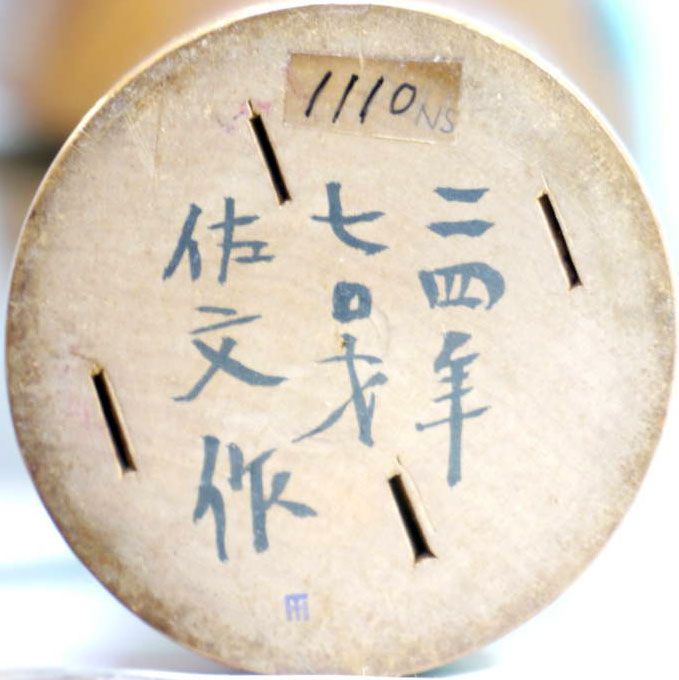 1110NS
二四年
七〇才
佐文作